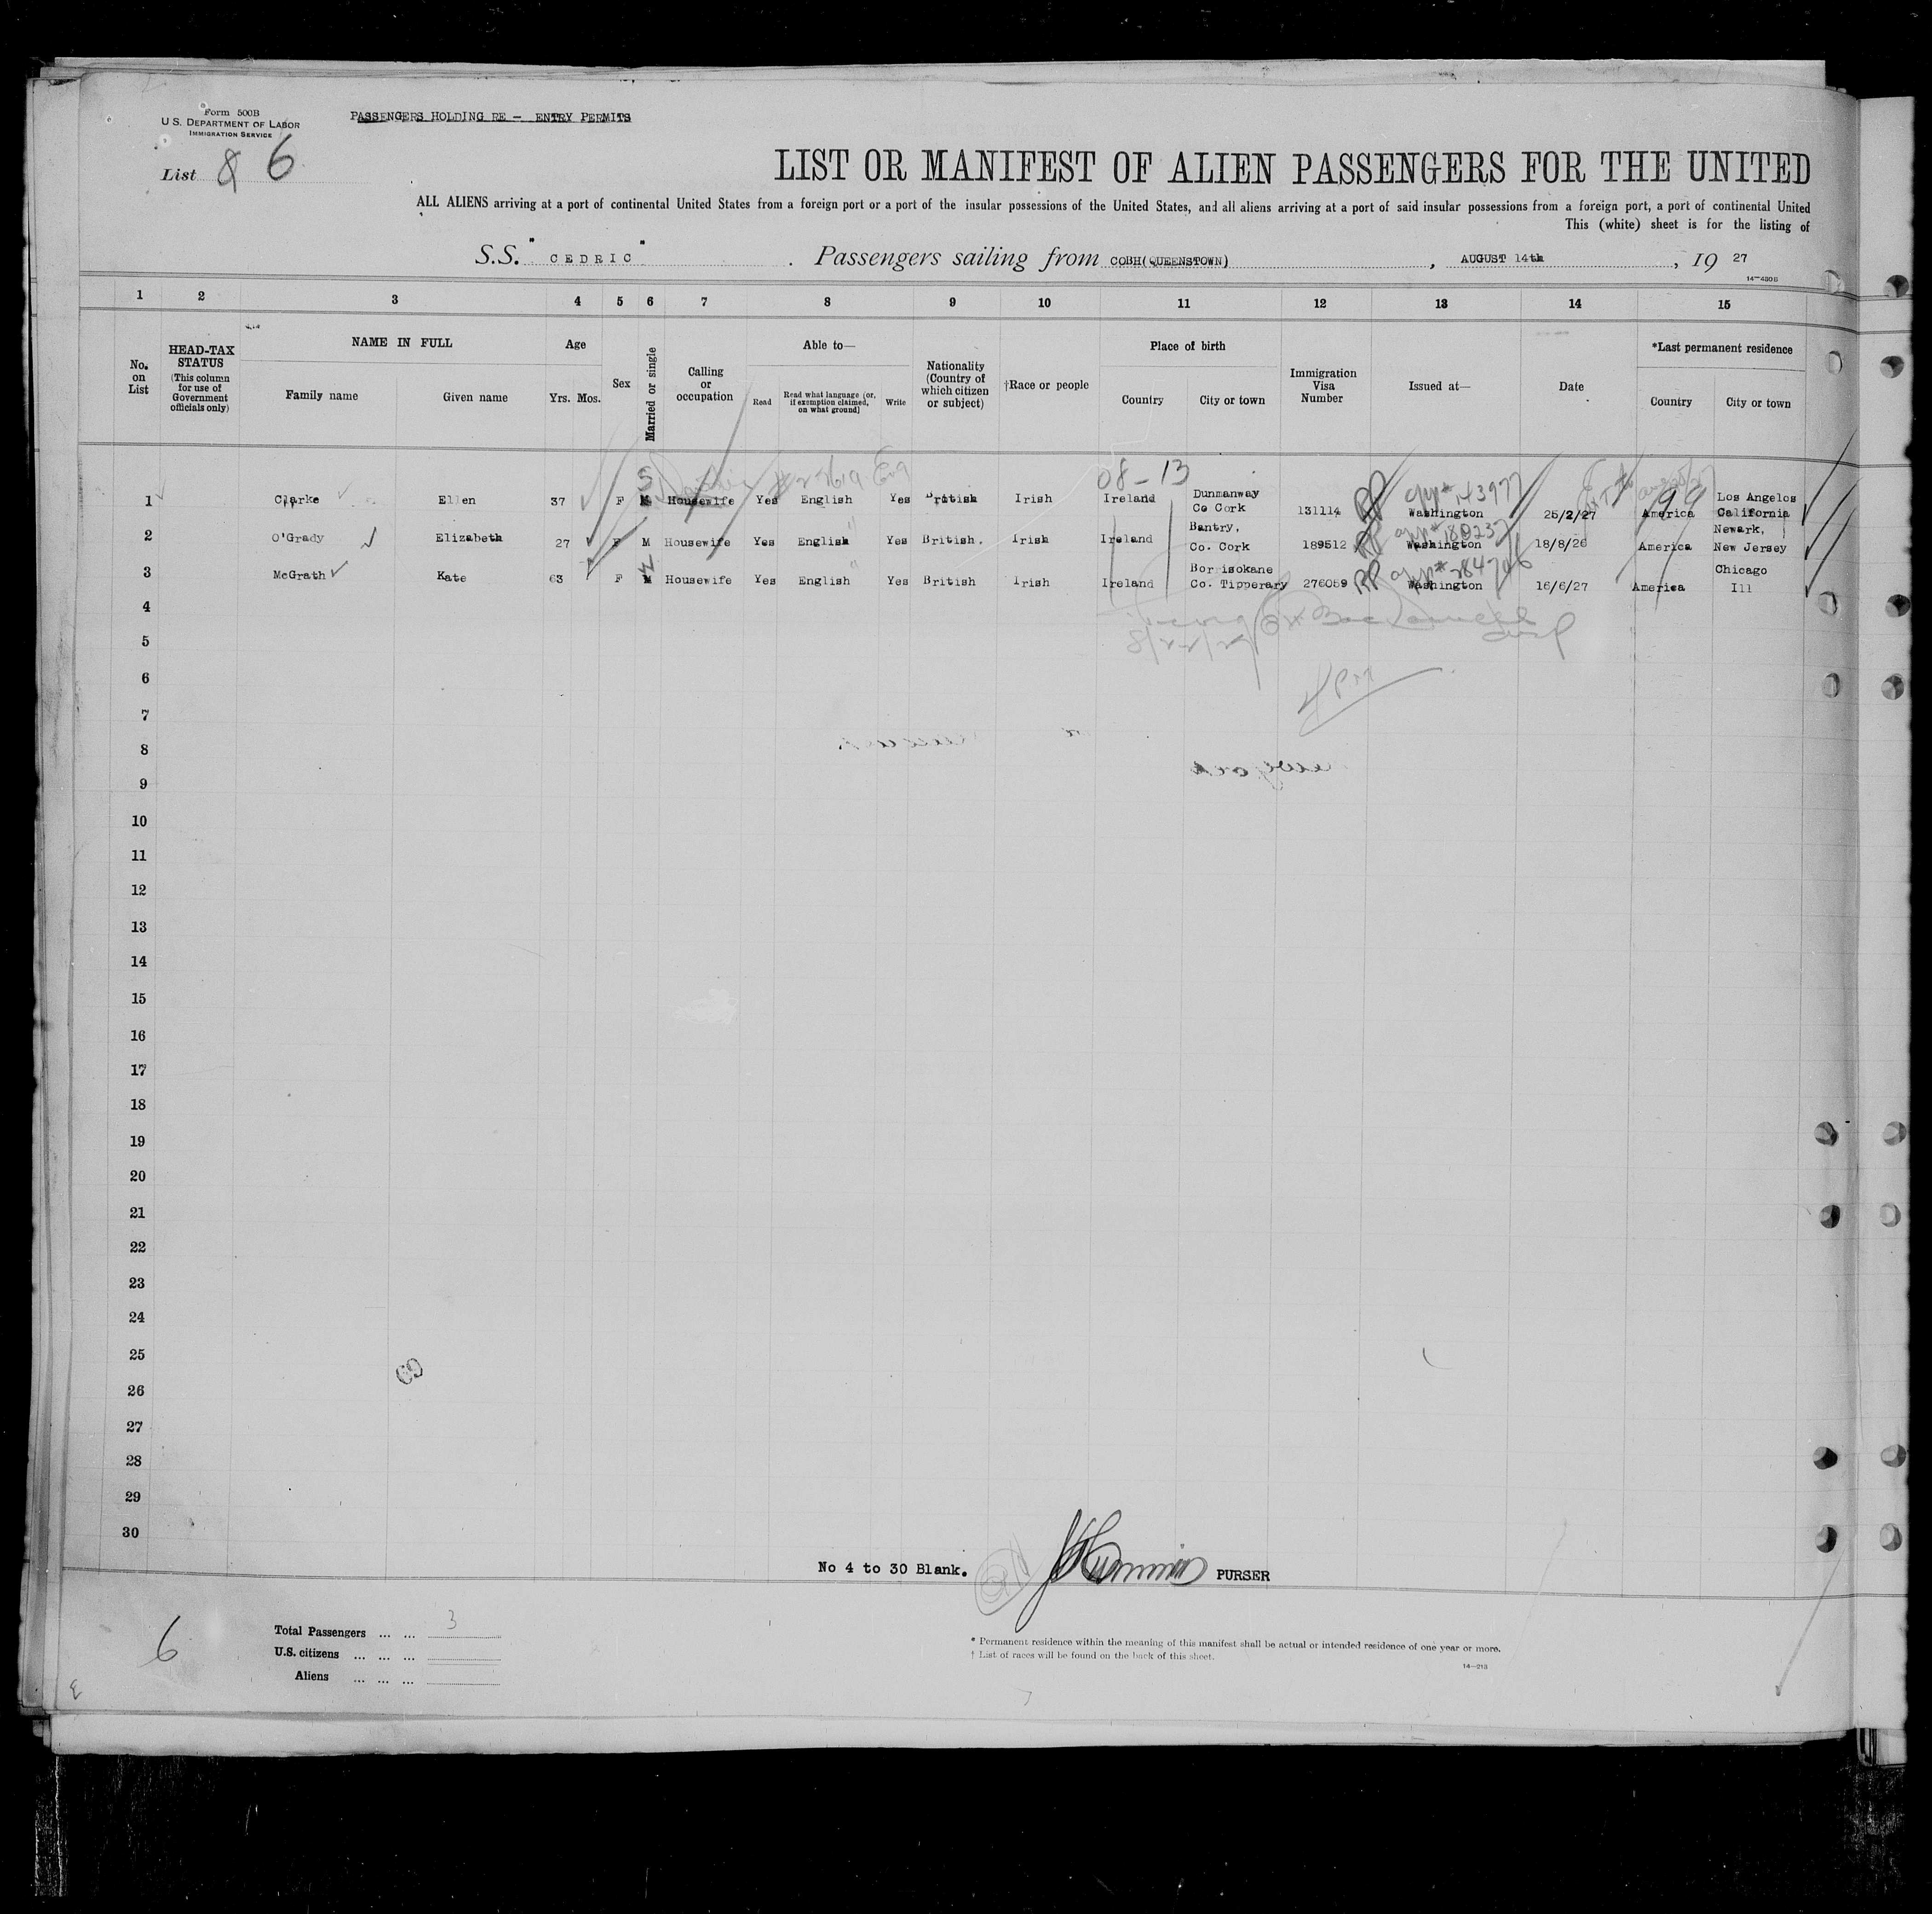 Form 500B
U. S. DEPARTMENT OF LABOR
IMMIGRATION SERVICE
PASSENGERS HOLDING RE - ENTRY PERMITS
List 8 6
LIST OR MANIFEST OF ALIEN PASSENGERS FOR THE UNITED
ALL ALIENS arriving at a port of continental United States from a foreign port or a port of the insular possessions of the United States, and all aliens arriving at a port of said insular possessions from a foreign port, a port of continental United
This (white) sheet is for the listing of
S.S. " CEDRIC " . Passengers sailing from COBH(QUEENSTOWN) , AUGUST 14th , 19 27
14-430B
1 2 3 4 5 6 7 8 9 10 11 12 13 14 15
No. on List
HEAD-TAX STATUS (This column for use of Government officials only)
NAME IN FULL
Family name
Given name
Age
Yrs. Mos.
Sex
Married or single
Calling or occupation
Able to—
Read
Read what language (or, if exemption claimed, on what ground)
Write
Nationality (Country of which citizen or subject)
†Race or people
Place of birth
Country
City or town
Immigration Visa Number
Issued at—
Date
*Last permanent residence
Country
City or town
S 08-13
1 Clarke Ellen 37 F M Housewife Yes English Yes British Irish Ireland Dunmanway Co Cork 131114 RP app# 143977 Washington 25/2/27 America Los Angelos California
2 O'Grady Elizabeth 27 F M Housewife Yes English Yes British. Irish Ireland Bantry, Co. Cork 189512 RP app# 180237 Washington 18/8/26 America Newark, New Jersey
3 McGrath Kate 63 F M Housewife Yes English Yes British Irish Ireland Borrisokane Co. Tipperary 276059 RP app# 284706 Washington 16/6/27 America Chicago Ill
4
5
6
7
8
9
10
11
12
13
14
15
16
17
18
19
20
21
22
23
24
25
26
27
28
29
30
69
No 4 to 30 Blank.
PURSER
6
Total Passengers ... ... 3
U.S. citizens ... ... ...
Aliens ... ... ...
* Permanent residence within the meaning of this manifest shall be actual or intended residence of one year or more.
† List of races will be found on the back of this sheet.
14-213